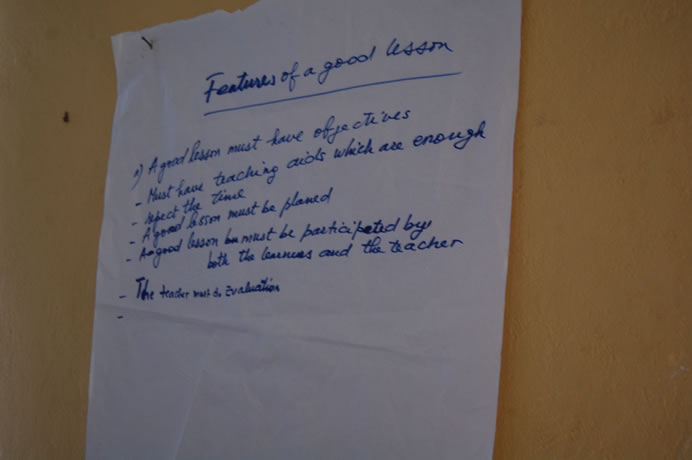 Features of a good lesson
A good lesson must have objectives
- Must have teaching aids which are enough
- repect the time
- A good lesson must be planed
- A good lesson must be participated by
both the learners and the teacher
- The teacher must do Evaluation
-